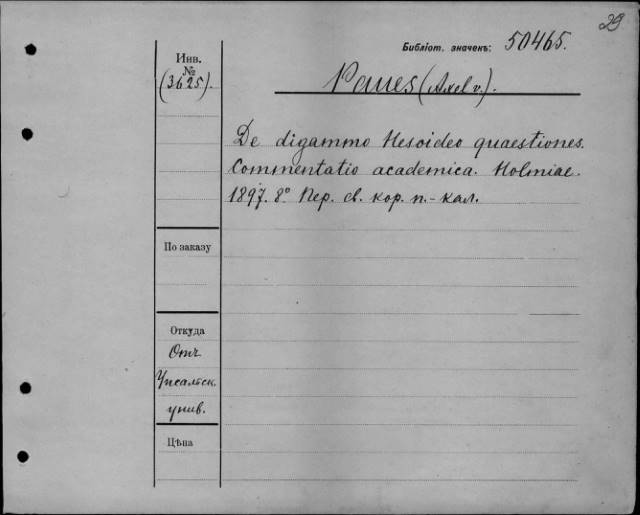 29
Библіот. значекъ: 50465.
Инв.
№
(3625).
Paues (Axel v.).
De digammo Hesoideo quaestiones.
Commentatio academica. Holmiae.
1897. 8° Пер. св. кор. п.-кал.
По заказу
Откуда
Отъ
Упсальск.
унив.
Цѣна